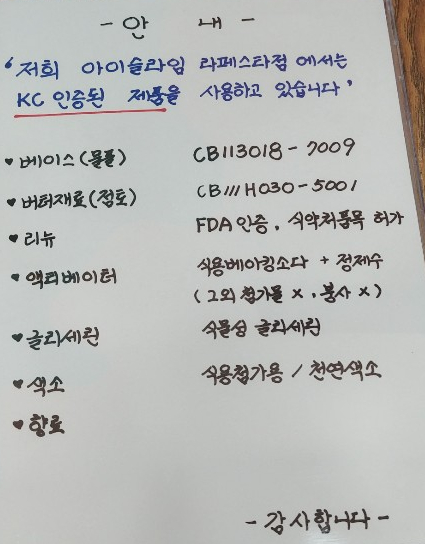 - 안 내 -
'저희 아이슬라임 라페스타점 에서는
KC 인증된 제품을 사용하고 있습니다'
♥ 베이스(물풀) CB113018-7009
♥ 버터재료(점토) CB111H030-5001
♥ 리뉴 FDA인증, 식약처품목 허가
♥ 액티베이터 식용베이킹소다 + 정제수
(그외 첨가물 x, 붕사 x)
♥ 글리세린 식물성 글리세린
♥ 색소 식용첨가용 / 천연색소
♥ 향료
- 감사합니다 -